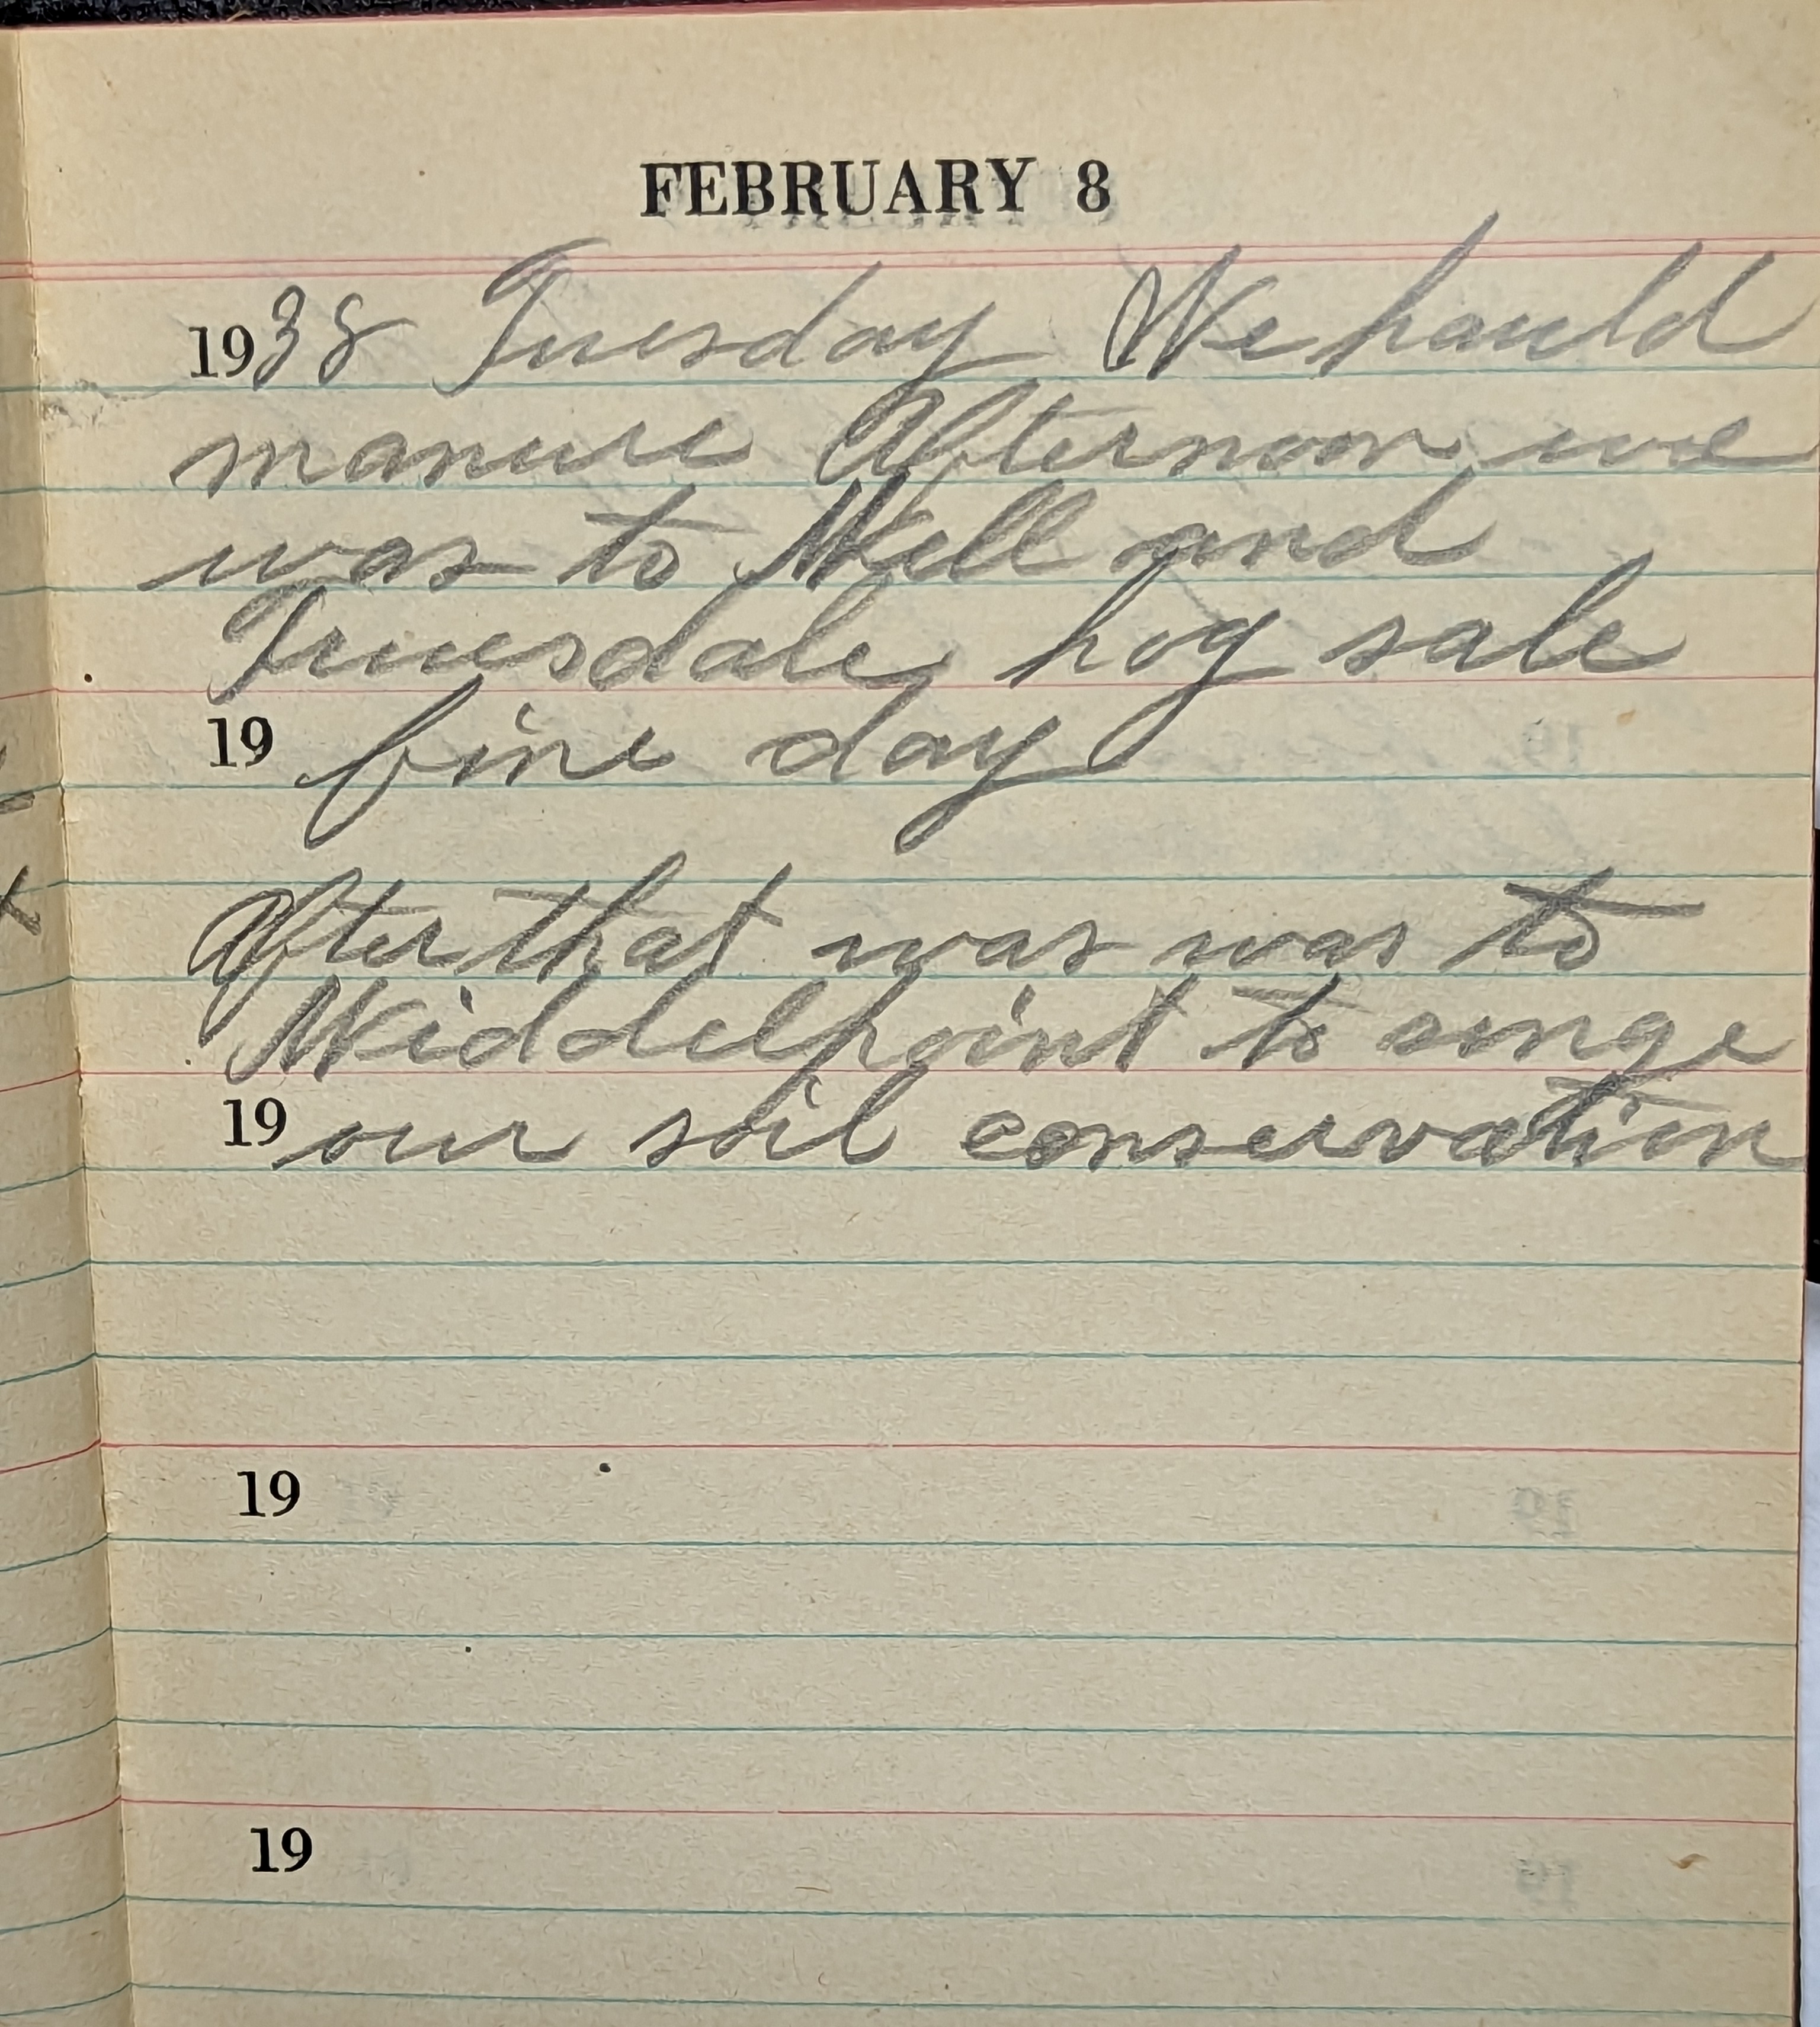 FEBRUARY 8
1938 Tuesday We hauld
manure Afternoon we
was to Mell and
Truesdale hog sale
19 fine day
After that was was to
Middelpoint to singe
19 our soil conservation
19
19